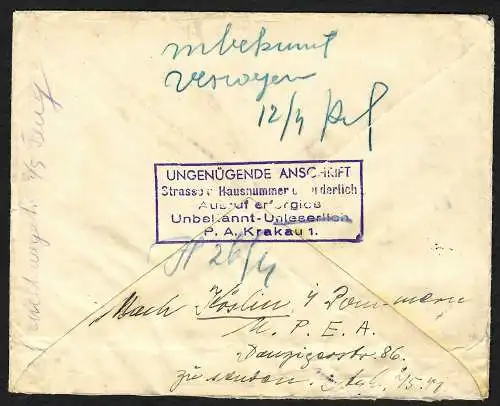 unbekannt
verzogen
12/4
UNGENÜGENDE ANSCHRIFT
Strasse u Hausnummer erforderlich
Ausruf erfolglos
Unbekannt-Unleserlich
P. A. Krakau 1.
26/4
Nach Köslin i/ Pommern
M. P. E. A.
Danzigerstr. 86.
zu senden.